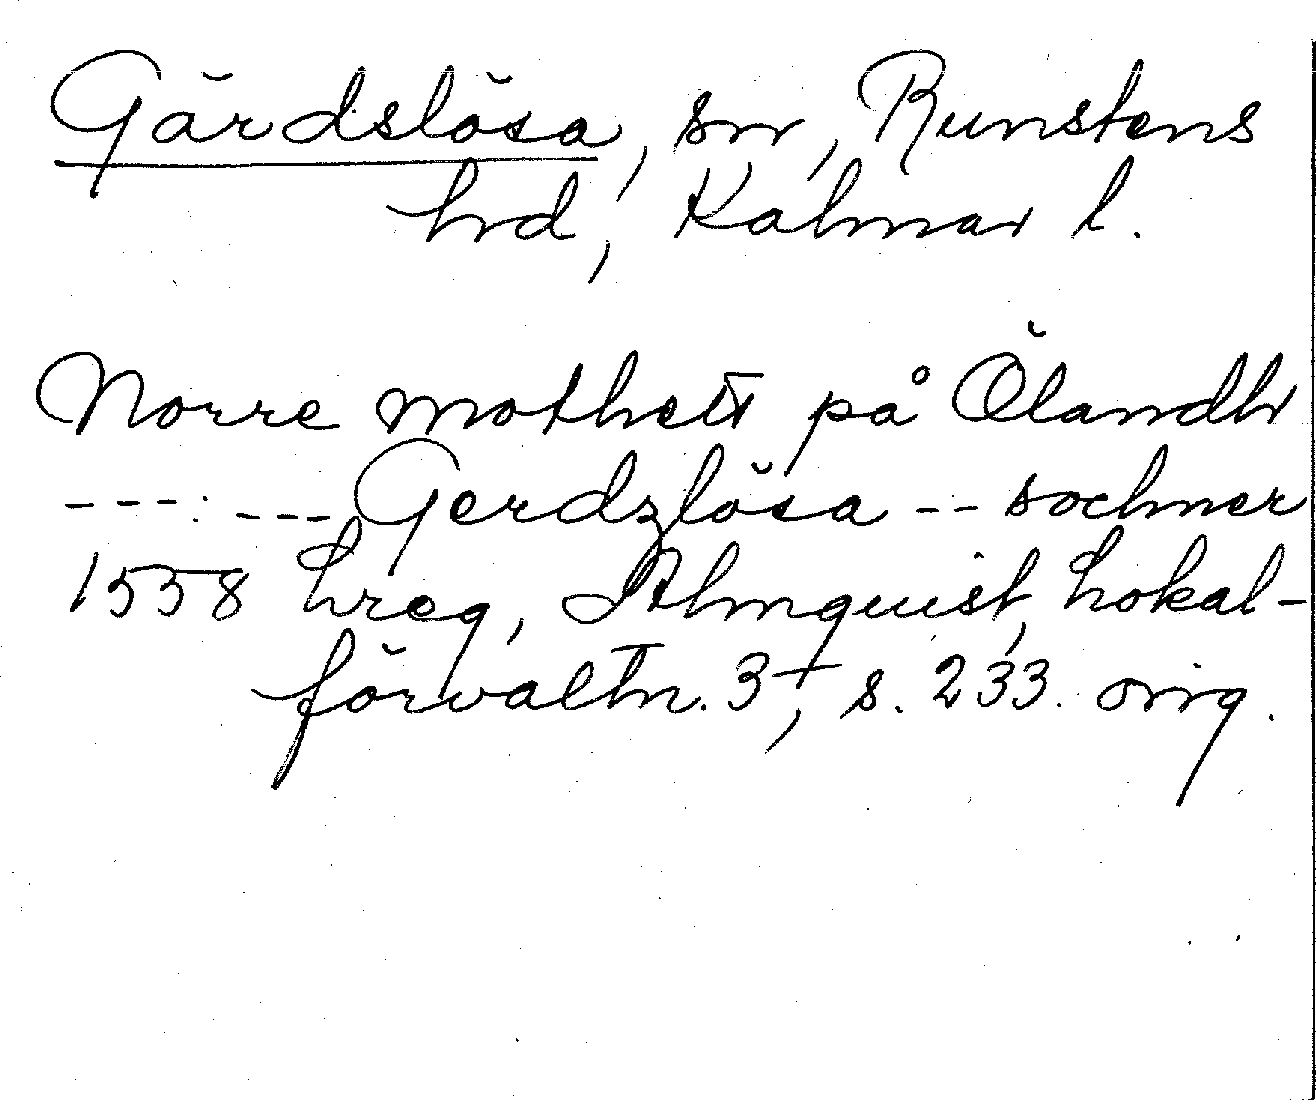 Gärdslösa, sn, Runstens
hrd, Kalmar l.
Norre mothett på Ölandh
--- --- Gerdzlösa -- sochner
1558 hreg, Almquist, Lokal-
förvaltn. 3, s. 233. orig.